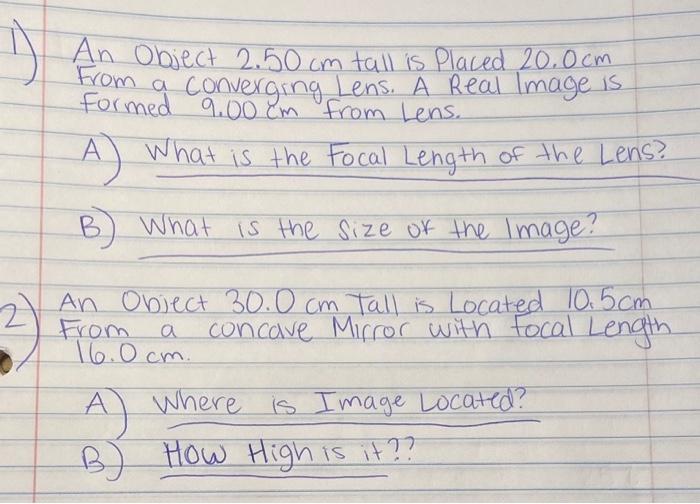 1) An Object 2.50 cm tall is Placed 20.0cm
From a converging Lens. A Real Image is
Formed 9.00 cm from Lens.
A) What is the Focal Length of the Lens?
B) What is the size of the Image?
2) An Object 30.0 cm Tall is Located 10.5cm
From a concave Mirror with focal Length
16.0 cm.
A) Where is Image Located?
B) How High is it??